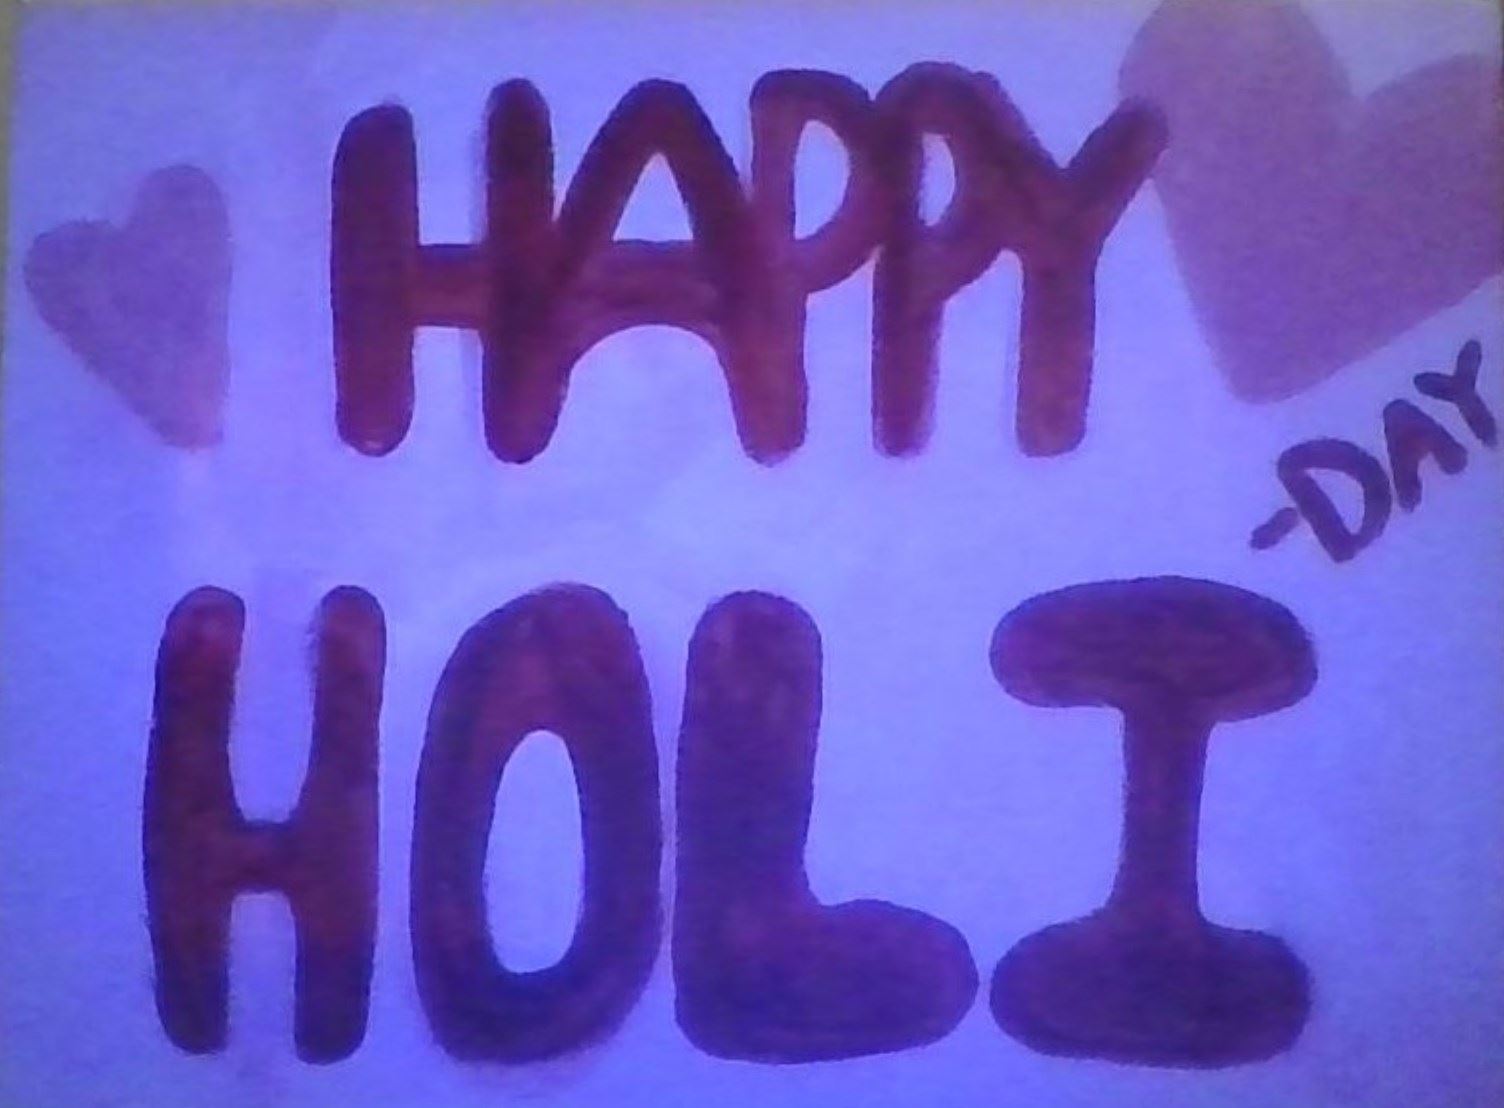 HAPPY
-DAY
HOLI